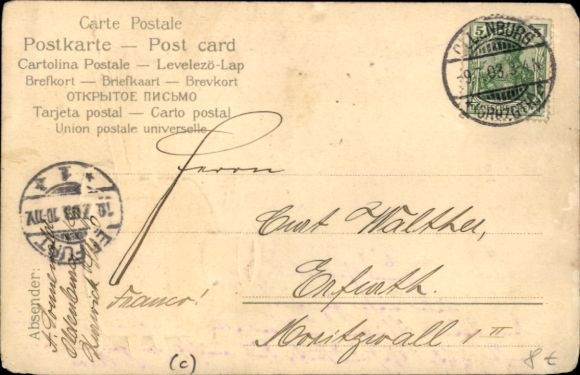 Carte Postale
Postkarte — Post card
Cartolina Postale — Levelező-Lap
Brefkort — Briefkaart — Brevkort
ОТКРЫТОЕ ПИСЬМО
Tarjeta postal — Carto postal
Union postale universelle
5
OLDENBURG
(GROZGT.)
ERFURT
1
Herrn
Curt Walther,
Erfurth.
Moritzwall 1 II
Franco!
Absender:
Oldenburg
(c)
8 €